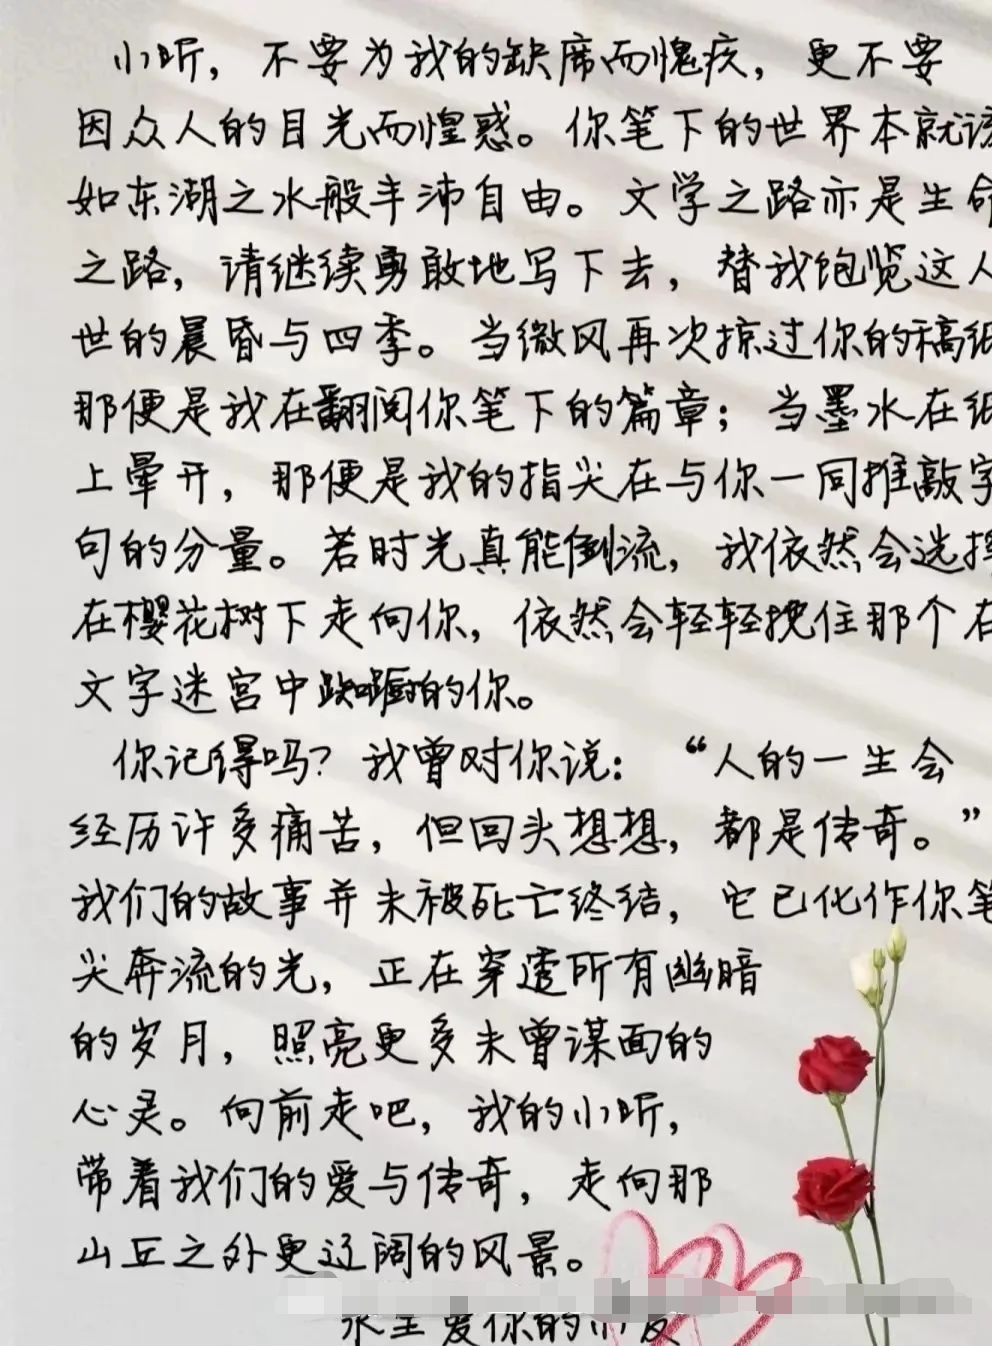 小昕，不要为我的缺席而愧疚，更不要
因众人的目光而惶惑。你笔下的世界本就该
如东湖之水般丰沛自由。文学之路亦是生命
之路，请继续勇敢地写下去，替我饱览这人
世的晨昏与四季。当微风再次掠过你的稿纸
那便是我在翻阅你笔下的篇章；当墨水在纸
上晕开，那便是我的指尖在与你一同推敲字
句的分量。若时光真能倒流，我依然会选择
在樱花树下走向你，依然会轻轻挽住那个在
文字迷宫中踟蹰的你。
你记得吗？我曾对你说：“人的一生会
经历许多痛苦，但回头想想，都是传奇。”
我们的故事并未被死亡终结，它已化作你笔
尖奔流的光，正在穿透所有幽暗
的岁月，照亮更多未曾谋面的
心灵。向前走吧，我的小昕，
带着我们的爱与传奇，走向那
山丘之外更辽阔的风景。
永生爱你的小友